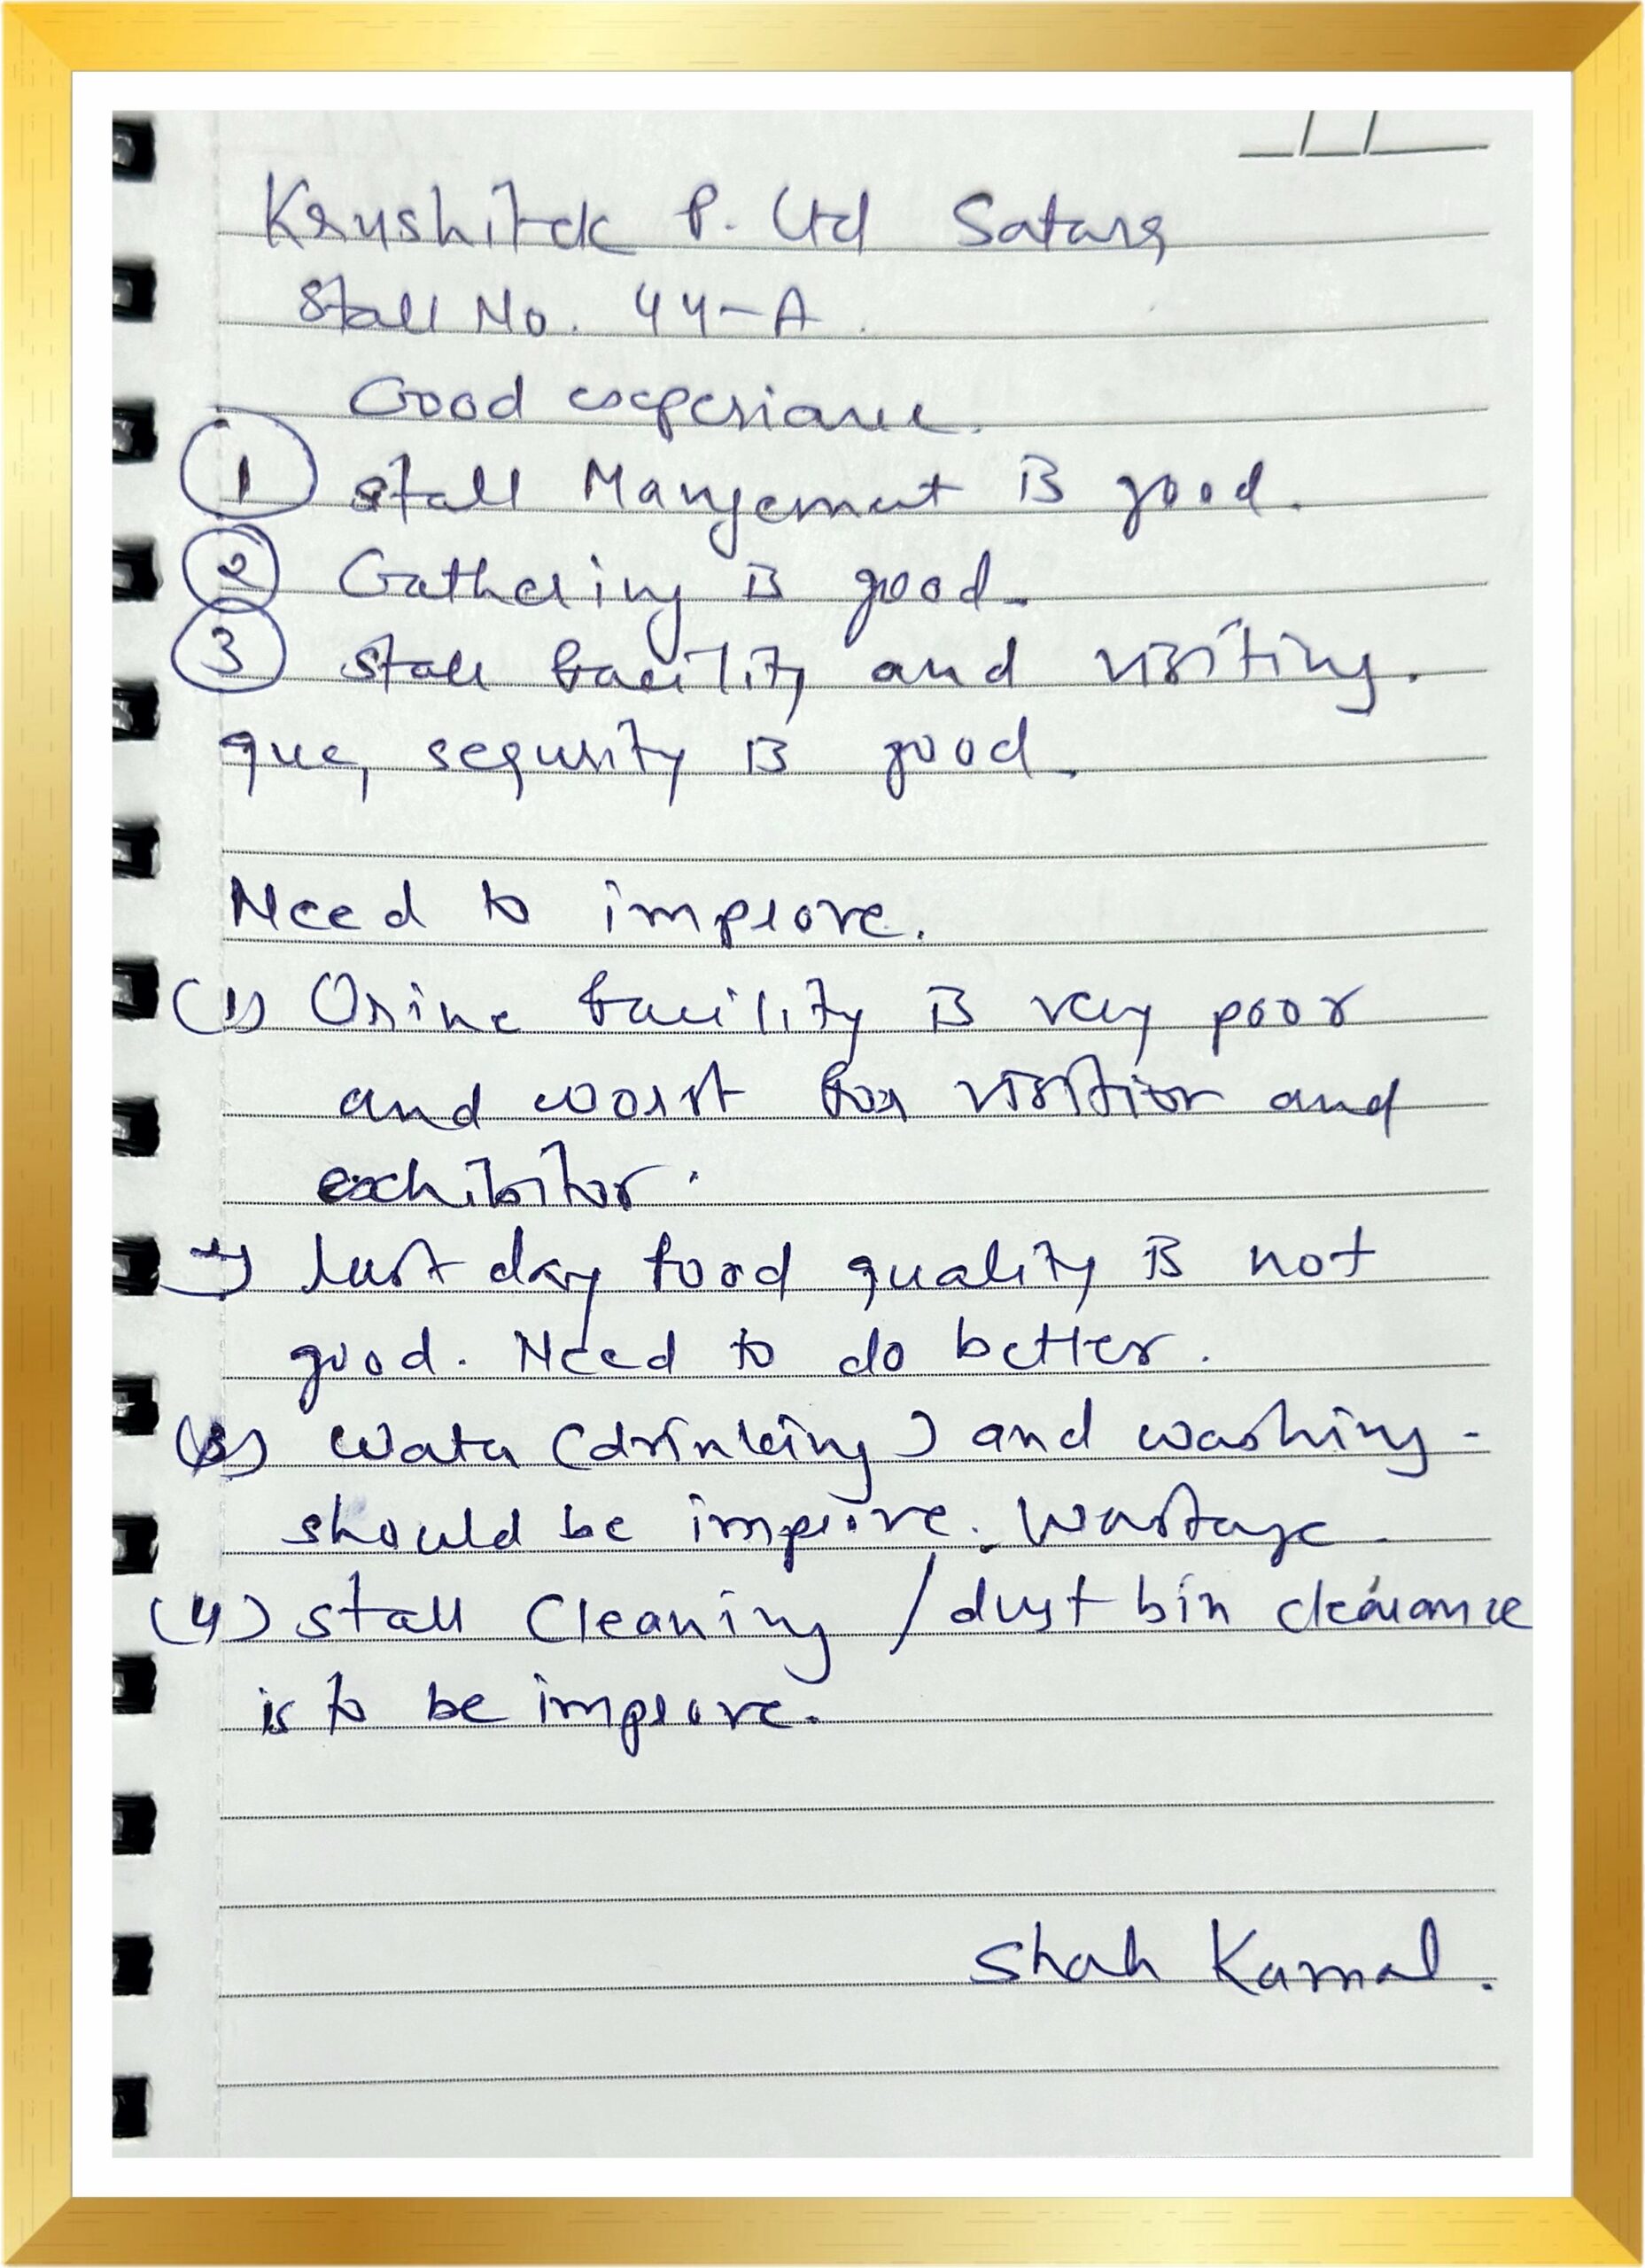 Krushitek P. Ltd Satara
Stall No. 44-A.
Good experiance.
1 stall Mangement is good.
2 Gathering is good.
3 stall facility and visiting.
que, sequrity is good.
Need to improve.
(1) Orine facility is very poor
and worst for visitior and
exhibitor.
2) last day food quality is not
good. Need to do better.
(3) Water (drinking) and washing -
should be improve. Wastage.
(4) stall Cleaning / dust bin clearance
is to be improve.
Shah Kamal.